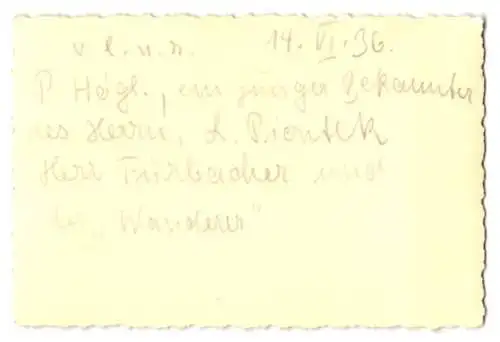 v l. n. r. 14. VI. 36.
P. Högl., ein junger Bekannter
des Herrn, L. Piontek
Herr Fürbacher und
"Wanderer"